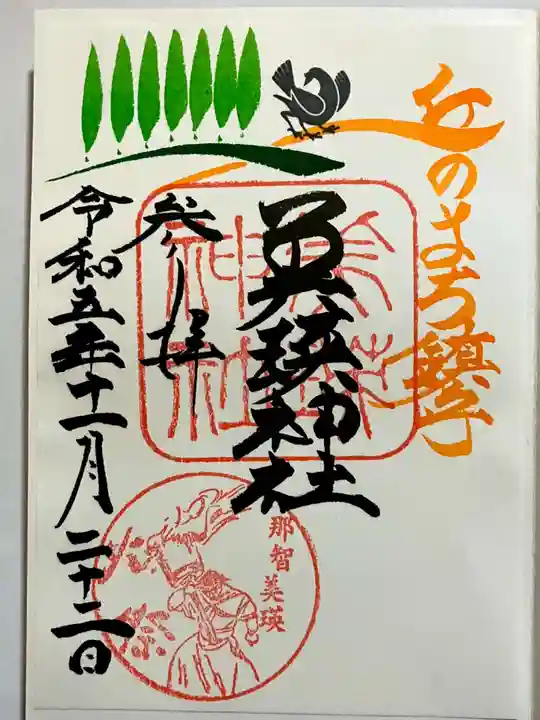 丘のまち鎮守
美瑛神社
美瑛神社
参拝
令和五年十一月二十二日
那智美瑛